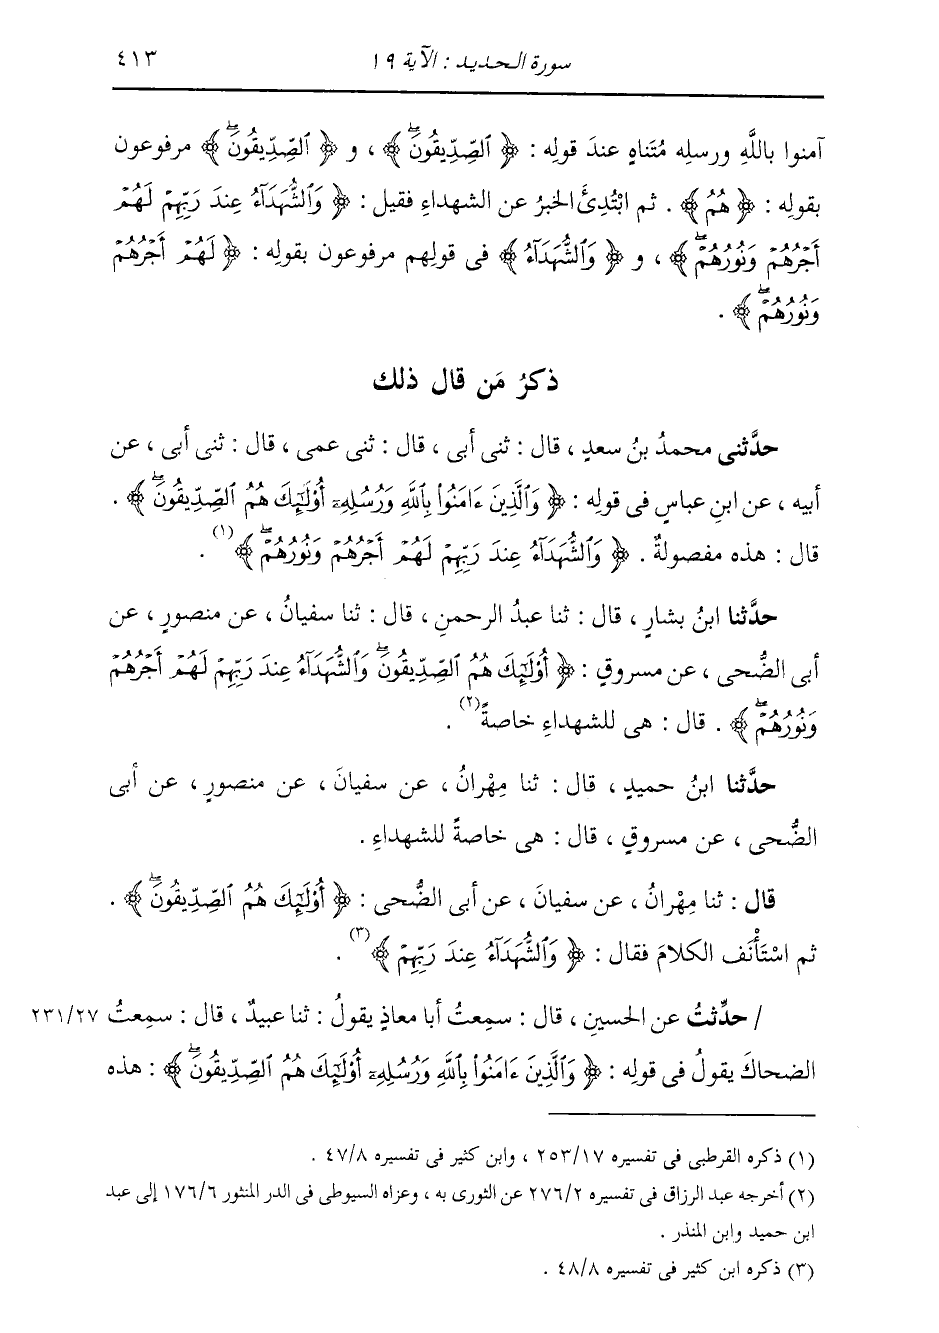 سورة الحديد : الآية ١٩
٤١٣
آمنوا باللَّهِ ورسلِه مُتَناهٍ عندَ قولِه : ﴿ ٱلصِّدِّيقُونَۖ ﴾ ، و ﴿ ٱلصِّدِّيقُونَۖ ﴾ مرفوعون
بقولِه : ﴿ هُمُ ﴾ . ثم ابْتُدِئَ الخبرُ عن الشهداءِ فقيل : ﴿ وَٱلشُّهَدَآءُ عِندَ رَبِّهِمْ لَهُمْ
أَجْرُهُمْ وَنُورُهُمْۖ ﴾ ، و ﴿ وَٱلشُّهَدَآءُ ﴾ فى قولِهم مرفوعون بقولِه : ﴿ لَهُمْ أَجْرُهُمْ
وَنُورُهُمْۖ ﴾ .
ذكرُ مَن قال ذلك
حدَّثنى محمدُ بنُ سعدٍ ، قال : ثنى أبى ، قال : ثنى عمى ، قال : ثنى أبى ، عن
أبيه ، عن ابنِ عباسٍ فى قولِه : ﴿ وَٱلَّذِينَ ءَامَنُوا۟ بِٱللَّهِ وَرُسُلِهِۦٓ أُو۟لَٰٓئِكَ هُمُ ٱلصِّدِّيقُونَۖ ﴾ .
قال : هذه مفصولةٌ . ﴿ وَٱلشُّهَدَآءُ عِندَ رَبِّهِمْ لَهُمْ أَجْرُهُمْ وَنُورُهُمْۖ ﴾(١) .
حدَّثنا ابنُ بشارٍ ، قال : ثنا عبدُ الرحمنِ ، قال : ثنا سفيانُ ، عن منصورٍ ، عن
أبى الضُّحى ، عن مسروقٍ : ﴿ أُو۟لَٰٓئِكَ هُمُ ٱلصِّدِّيقُونَۖ وَٱلشُّهَدَآءُ عِندَ رَبِّهِمْ لَهُمْ أَجْرُهُمْ
وَنُورُهُمْۖ ﴾ . قال : هى للشهداءِ خاصةً(٢) .
حدَّثنا ابنُ حميدٍ ، قال : ثنا مِهْرانُ ، عن سفيانَ ، عن منصورٍ ، عن أبى
الضُّحى ، عن مسروقٍ ، قال : هى خاصةً للشهداءِ .
قال : ثنا مِهْرانُ ، عن سفيانَ ، عن أبى الضُّحى : ﴿ أُو۟لَٰٓئِكَ هُمُ ٱلصِّدِّيقُونَۖ ﴾ .
ثم اسْتَأْنَف الكلامَ فقال : ﴿ وَٱلشُّهَدَآءُ عِندَ رَبِّهِمْ ﴾(٣) .
/ حدِّثتُ عن الحسينِ ، قال : سمِعتُ أبا معاذٍ يقولُ : ثنا عبيدٌ ، قال : سمِعتُ ٢٣١/٢٧
الضحاكَ يقولُ فى قولِه : ﴿ وَٱلَّذِينَ ءَامَنُوا۟ بِٱللَّهِ وَرُسُلِهِۦٓ أُو۟لَٰٓئِكَ هُمُ ٱلصِّدِّيقُونَۖ ﴾ : هذه
(١) ذكره القرطبى فى تفسيره ٢٥٣/١٧ ، وابن كثير فى تفسيره ٤٧/٨ .
(٢) أخرجه عبد الرزاق فى تفسيره ٢٧٦/٢ عن الثورى به ، وعزاه السيوطى فى الدر المنثور ١٧٦/٦ إلى عبد
ابن حميد وابن المنذر .
(٣) ذكره ابن كثير فى تفسيره ٤٨/٨ .